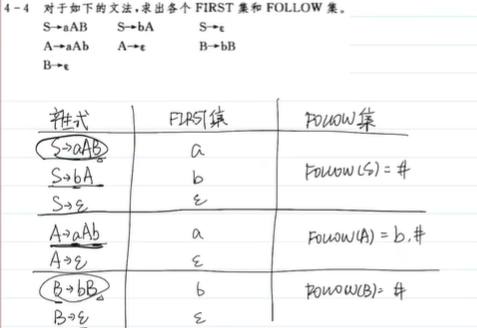 4-4 对于如下的文法,求出各个 FIRST 集和 FOLLOW 集。
S→aAB S→bA S→ε
A→aAb A→ε B→bB
B→ε
产生式 FIRST集 FOLLOW集
S→aAB a
FOLLOW(S) = #
S→bA b
S→ε ε
A→aAb a FOLLOW(A) = b,#
A→ε ε
B→bB b FOLLOW(B)= #
B→ε ε